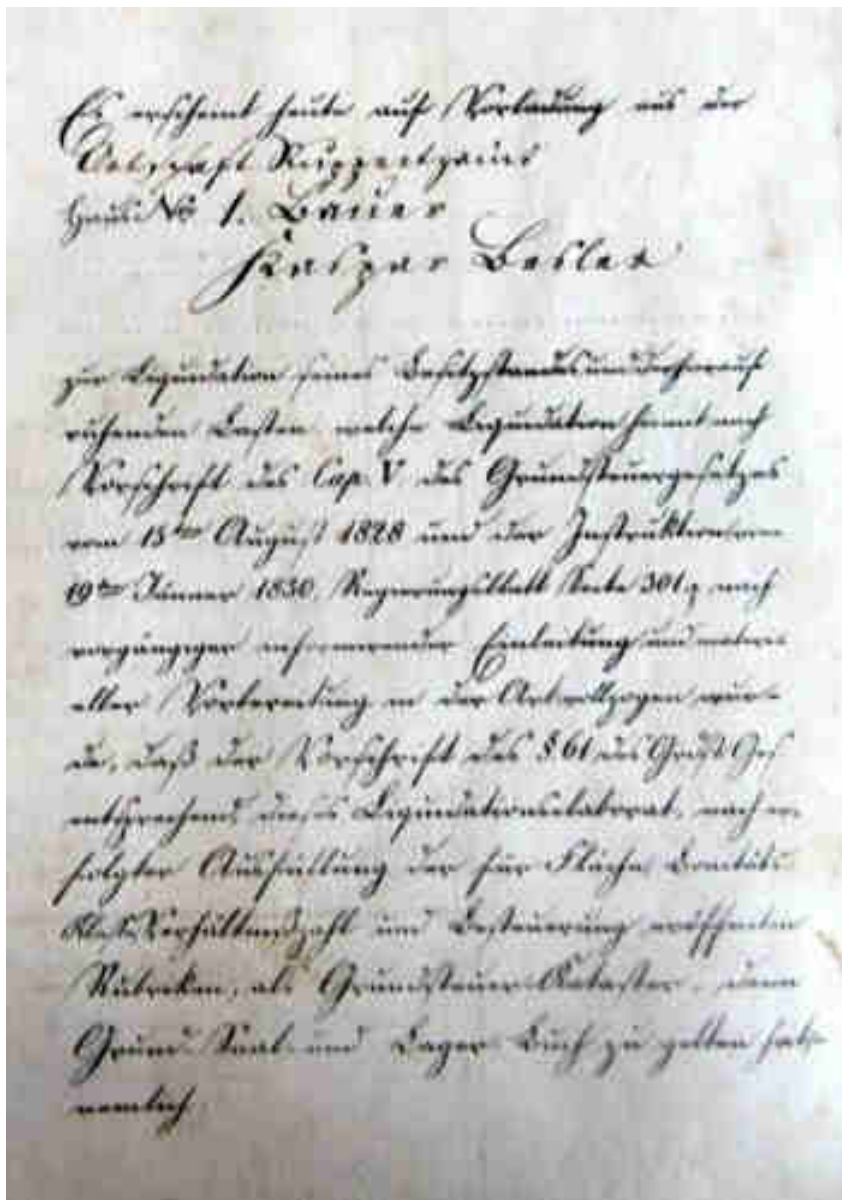 Es erscheint heute auf Vorladung aus der
Ortschaft Ruppertzaint
Haus No 1. Bauer
Kaspar Besler
zur Liquidation seines Besitzstandes und der hierauf
ruhenden Lasten welche Liquidation hiemit nach
Vorschrift des Cap. V des Grundsteuergesetzes
vom 15ten August 1828 und der Instruktion vom
19ten Jänner 1830, Regierungsblatt Seite 301 nach
vorgängiger informirender Einleitung und
aller Vorbereitung in der Art vollzogen wur-
de, daß der Vorschrift des § 61 des Grdst Ges
entsprechend dieses Liquidationselaborat, nach er-
folgter Ausfüllung der für Fläche, Bonitäts
Klaß, Verhältnißzahl und Besteuerung eröffneten
Rubriken, als Grundsteuer Kataster, dann
Grund- Saal- und Lager Buch zu gelten hat,
nemlich.